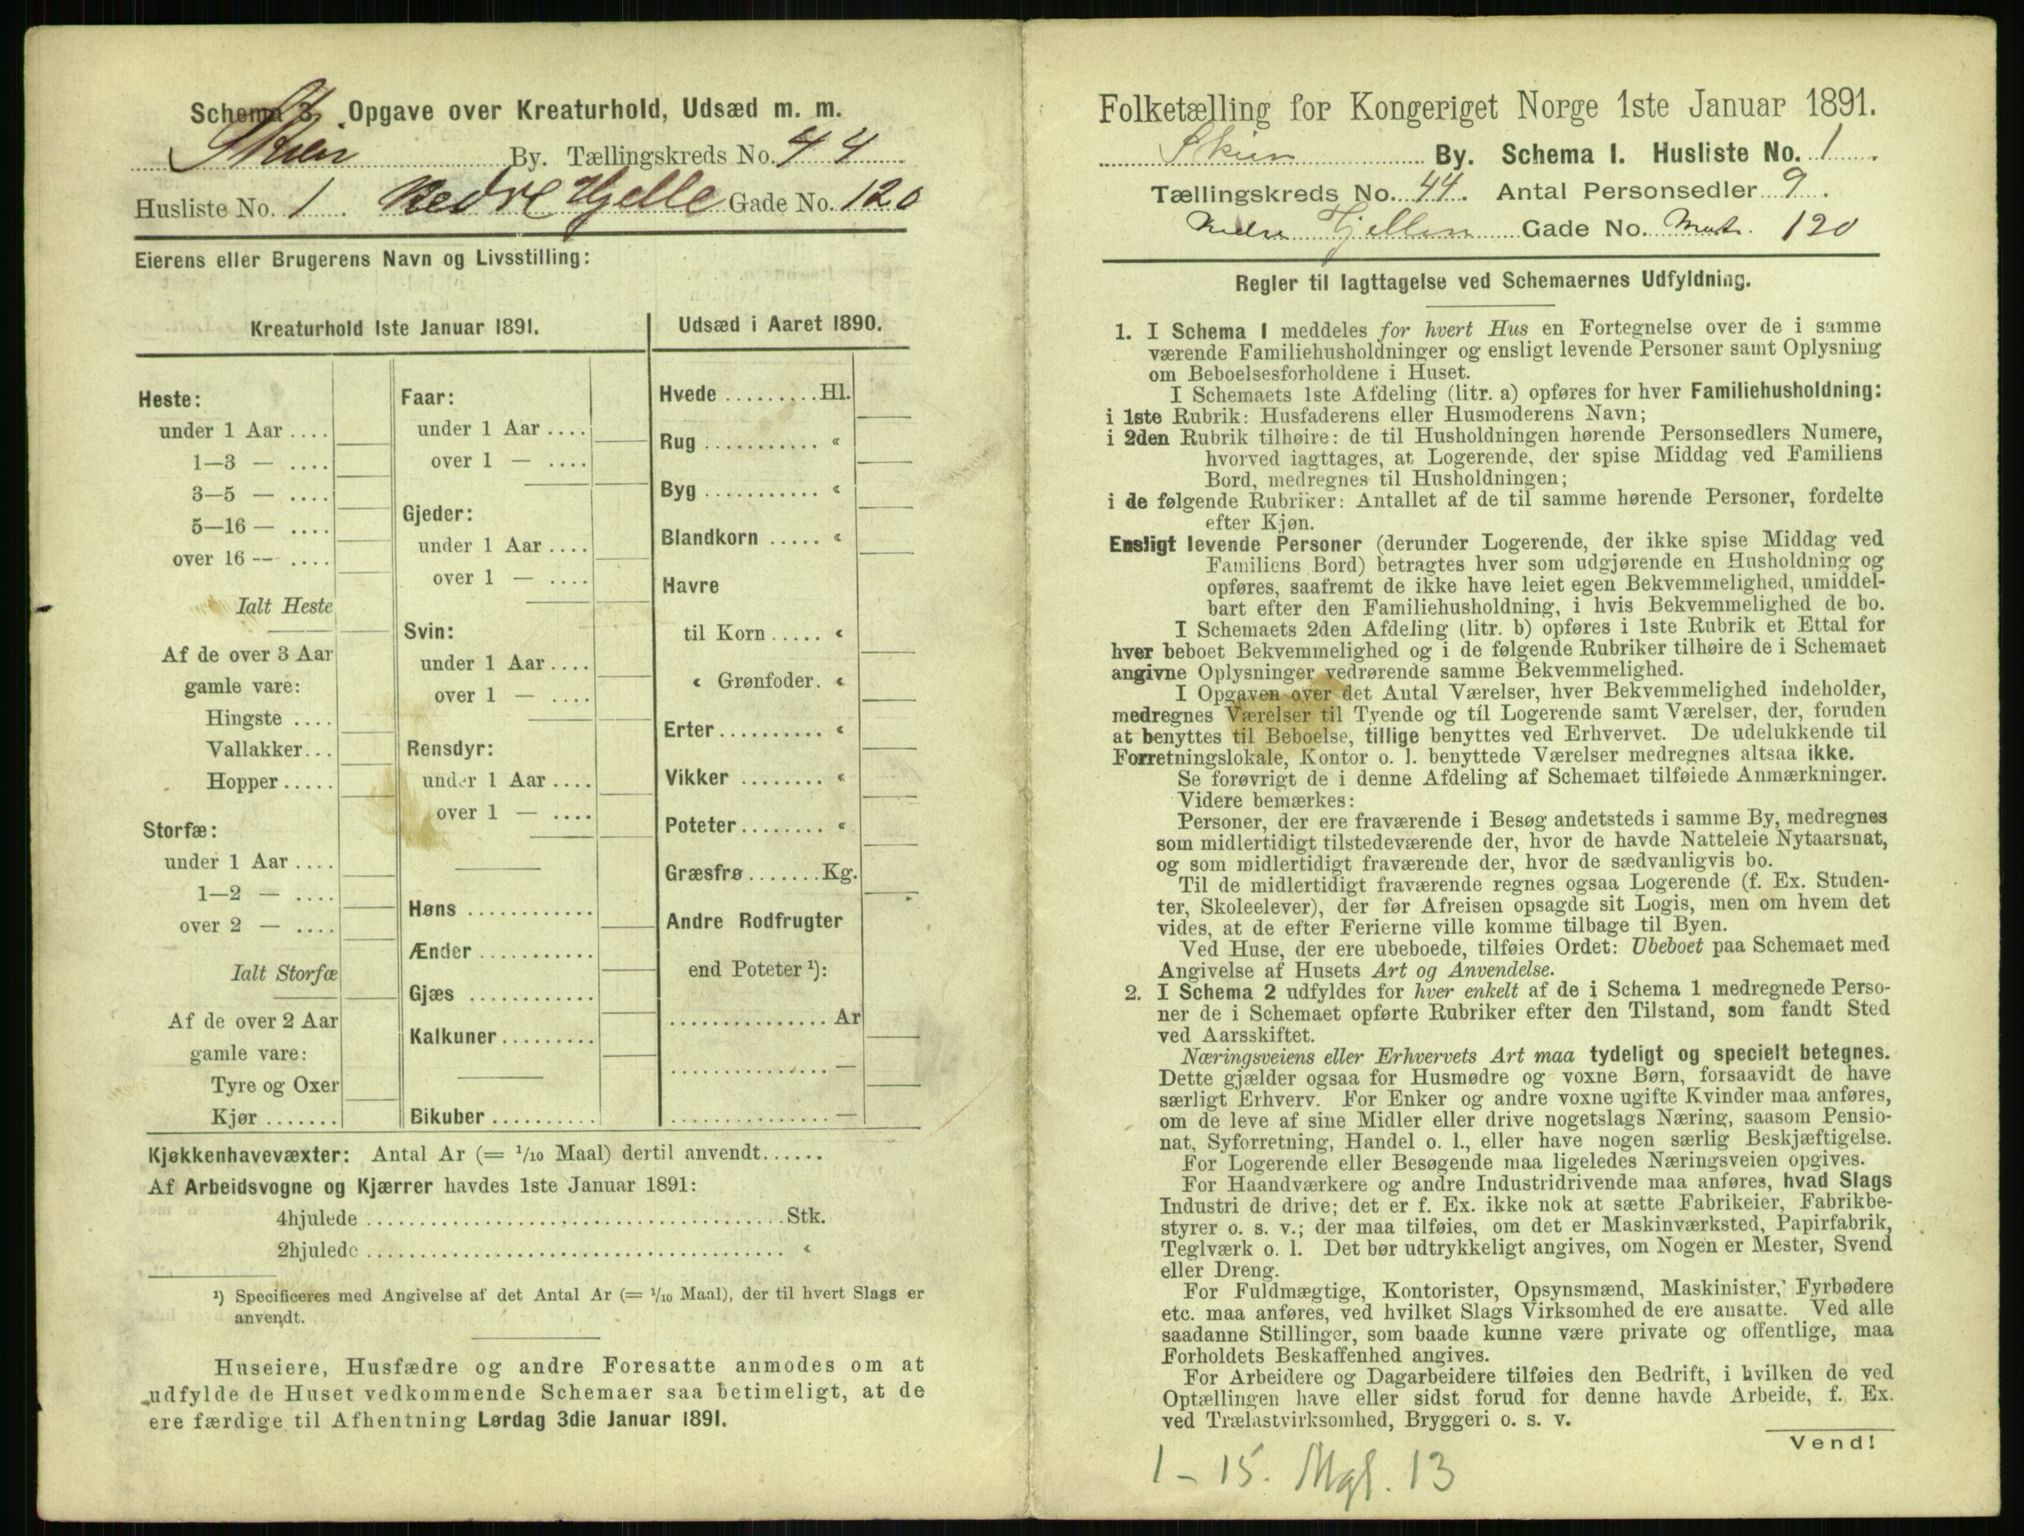 Schema 3. Opgave over Kreaturhold, Udsæd m. m.
Skien By. Tællingskreds No. 44
Husliste No. 1. Nedre Hjelle Gade No. 120
Eierens eller Brugerens Navn og Livsstilling:
Kreaturhold 1ste Januar 1891.
Heste:
under 1 Aar ....
1—3 — ....
3—5 — ....
5—16 — ....
over 16 — ....
Ialt Heste
Af de over 3 Aar
gamle vare:
Hingste ....
Vallakker...
Hopper.....
Storfæ:
under 1 Aar ....
1—2 — ....
over 2 — ....
Ialt Storfæ
Af de over 2 Aar
gamle vare:
Tyre og Oxer
Kjør .......
Faar:
under 1 Aar ....
over 1 — ....
Gjeder:
under 1 Aar ....
over 1 — ....
Svin:
under 1 Aar ....
over 1 — ....
Rensdyr:
under 1 Aar ....
over 1 — ....
Høns ............
Ænder ...........
Gjæs ............
Kalkuner.........
Bikuber..........
Udsæd i Aaret 1890.
Hvede .........Hl.
Rug ........... «
Byg ........... «
Blandkorn ..... «
Havre
til Korn ..... «
« Grønfoder. «
Erter.......... «
Vikker ........ «
Poteter........ «
Græsfrø.......Kg.
Andre Rodfrugter
end Poteter ¹):
............... Ar
............... —
............... —
Kjøkkenhavevæxter: Antal Ar (= 1/10 Maal) dertil anvendt......
Af Arbeidsvogne og Kjærrer havdes 1ste Januar 1891:
4hjulede ........................................Stk.
2hjulede ........................................ «
¹) Specificeres med Angivelse af det Antal Ar (= 1/10 Maal), der til hvert Slags er
anvendt.
Huseiere, Husfædre og andre Foresatte anmodes om at
udfylde de Huset vedkommende Schemaer saa betimeligt, at de
ere færdige til Afhentning Lørdag 3die Januar 1891.
Folketælling for Kongeriget Norge 1ste Januar 1891.
Skien By. Schema I. Husliste No. 1.
Tællingskreds No. 44. Antal Personsedler 9.
Nedre Hjellen Gade No. Mat. 120
Regler til Iagttagelse ved Schemaernes Udfyldning.
1. I Schema 1 meddeles for hvert Hus en Fortegnelse over de i samme
værende Familiehusholdninger og ensligt levende Personer samt Oplysning
om Beboelsesforholdene i Huset.
I Schemaets 1ste Afdeling (litr. a) opføres for hver Familiehusholdning:
i 1ste Rubrik: Husfaderens eller Husmoderens Navn;
i 2den Rubrik tilhøire: de til Husholdningen hørende Personsedlers Numere,
hvorved iagttages, at Logerende, der spise Middag ved Familiens
Bord, medregnes til Husholdningen;
i de følgende Rubriker: Antallet af de til samme hørende Personer, fordelte
efter Kjøn.
Ensligt levende Personer (derunder Logerende, der ikke spise Middag ved
Familiens Bord) betragtes hver som udgjørende en Husholdning og
opføres, saafremt de ikke have leiet egen Bekvemmelighed, umiddel-
bart efter den Familiehusholdning, i hvis Bekvemmelighed de bo.
I Schemaets 2den Afdeling (litr. b) opføres i 1ste Rubrik et Ettal for
hver beboet Bekvemmelighed og i de følgende Rubriker tilhøire de i Schemaet
angivne Oplysninger vedrørende samme Bekvemmelighed.
I Opgaven over det Antal Værelser, hver Bekvemmelighed indeholder,
medregnes Værelser til Tyende og til Logerende samt Værelser, der, foruden
at benyttes til Beboelse, tillige benyttes ved Erhvervet. De udelukkende til
Forretningslokale, Kontor o. l. benyttede Værelser medregnes altsaa ikke.
Se forøvrigt de i denne Afdeling af Schemaet tilføiede Anmærkninger.
Videre bemærkes:
Personer, der ere fraværende i Besøg andetsteds i samme By, medregnes
som midlertidigt tilstedeværende der, hvor de havde Natteleie Nytaarsnat,
og som midlertidigt fraværende der, hvor de sædvanligvis bo.
Til de midlertidigt fraværende regnes ogsaa Logerende (f. Ex. Studen-
ter, Skoleelever), der før Afreisen opsagde sit Logis, men om hvem det
vides, at de efter Ferierne ville komme tilbage til Byen.
Ved Huse, der ere ubeboede, tilføies Ordet: Ubeboet paa Schemaet med
Angivelse af Husets Art og Anvendelse.
2. I Schema 2 udfyldes for hver enkelt af de i Schema 1 medregnede Perso-
ner de i Schemaet opførte Rubriker efter den Tilstand, som fandt Sted
ved Aarsskiftet.
Næringsveiens eller Erhvervets Art maa tydeligt og specielt betegnes.
Dette gjælder ogsaa for Husmødre og voxne Børn, forsaavidt de have
særligt Erhverv. For Enker og andre voxne ugifte Kvinder maa anføres,
om de leve af sine Midler eller drive nogetslags Næring, saasom Pensio-
nat, Syforretning, Handel o. l., eller have nogen særlig Beskjæftigelse.
For Logerende eller Besøgende maa ligeledes Næringsveien opgives.
For Haandværkere og andre Industridrivende maa anføres, hvad Slags
Industri de drive; det er f. Ex. ikke nok at sætte Fabrikeier, Fabrikbe-
styrer o. s. v.; der maa tilføies, om det er Maskinværksted, Papirfabrik,
Teglværk o. l. Det bør udtrykkeligt angives, om Nogen er Mester, Svend
eller Dreng.
For Fuldmægtige, Kontorister, Opsynsmænd, Maskinister, Fyrbødere
etc. maa anføres, ved hvilket Slags Virksomhed de ere ansatte. Ved alle
saadanne Stillinger, som baade kunne være private og offentlige, maa
Forholdets Beskaffenhed angives.
For Arbeidere og Dagarbeidere tilføies den Bedrift, i hvilken de ved
Optællingen have eller sidst forud for denne havde Arbeide, f. Ex.
ved Trælastvirksomhed, Bryggeri o. s. v.
Vend!
1 - 15. Mgl. 13